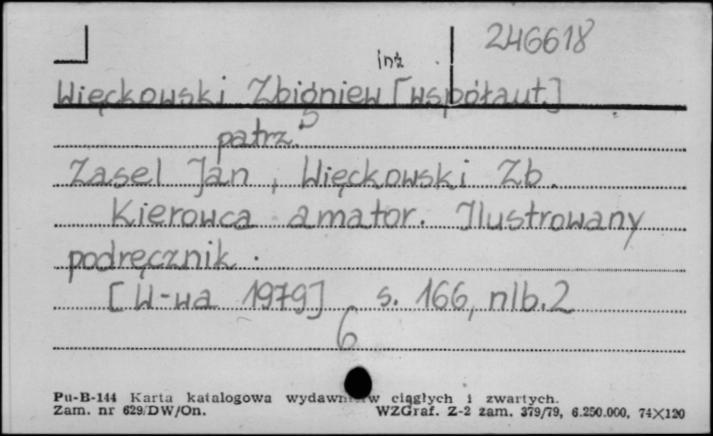 246618
inż
Więckowski Zbigniew [współaut.]
patrz:
Zasel Jan, Więckowski Zb.
Kierowca amator. Ilustrowany
podręcznik.
[W-wa 1979] s. 166, nlb. 2
6
Pu-B-144 Karta katalogowa wydawnictw ciągłych i zwartych.
Zam. nr 629/DW/On. WZGraf. Z-2 zam. 379/79, 6.250.000, 74X120